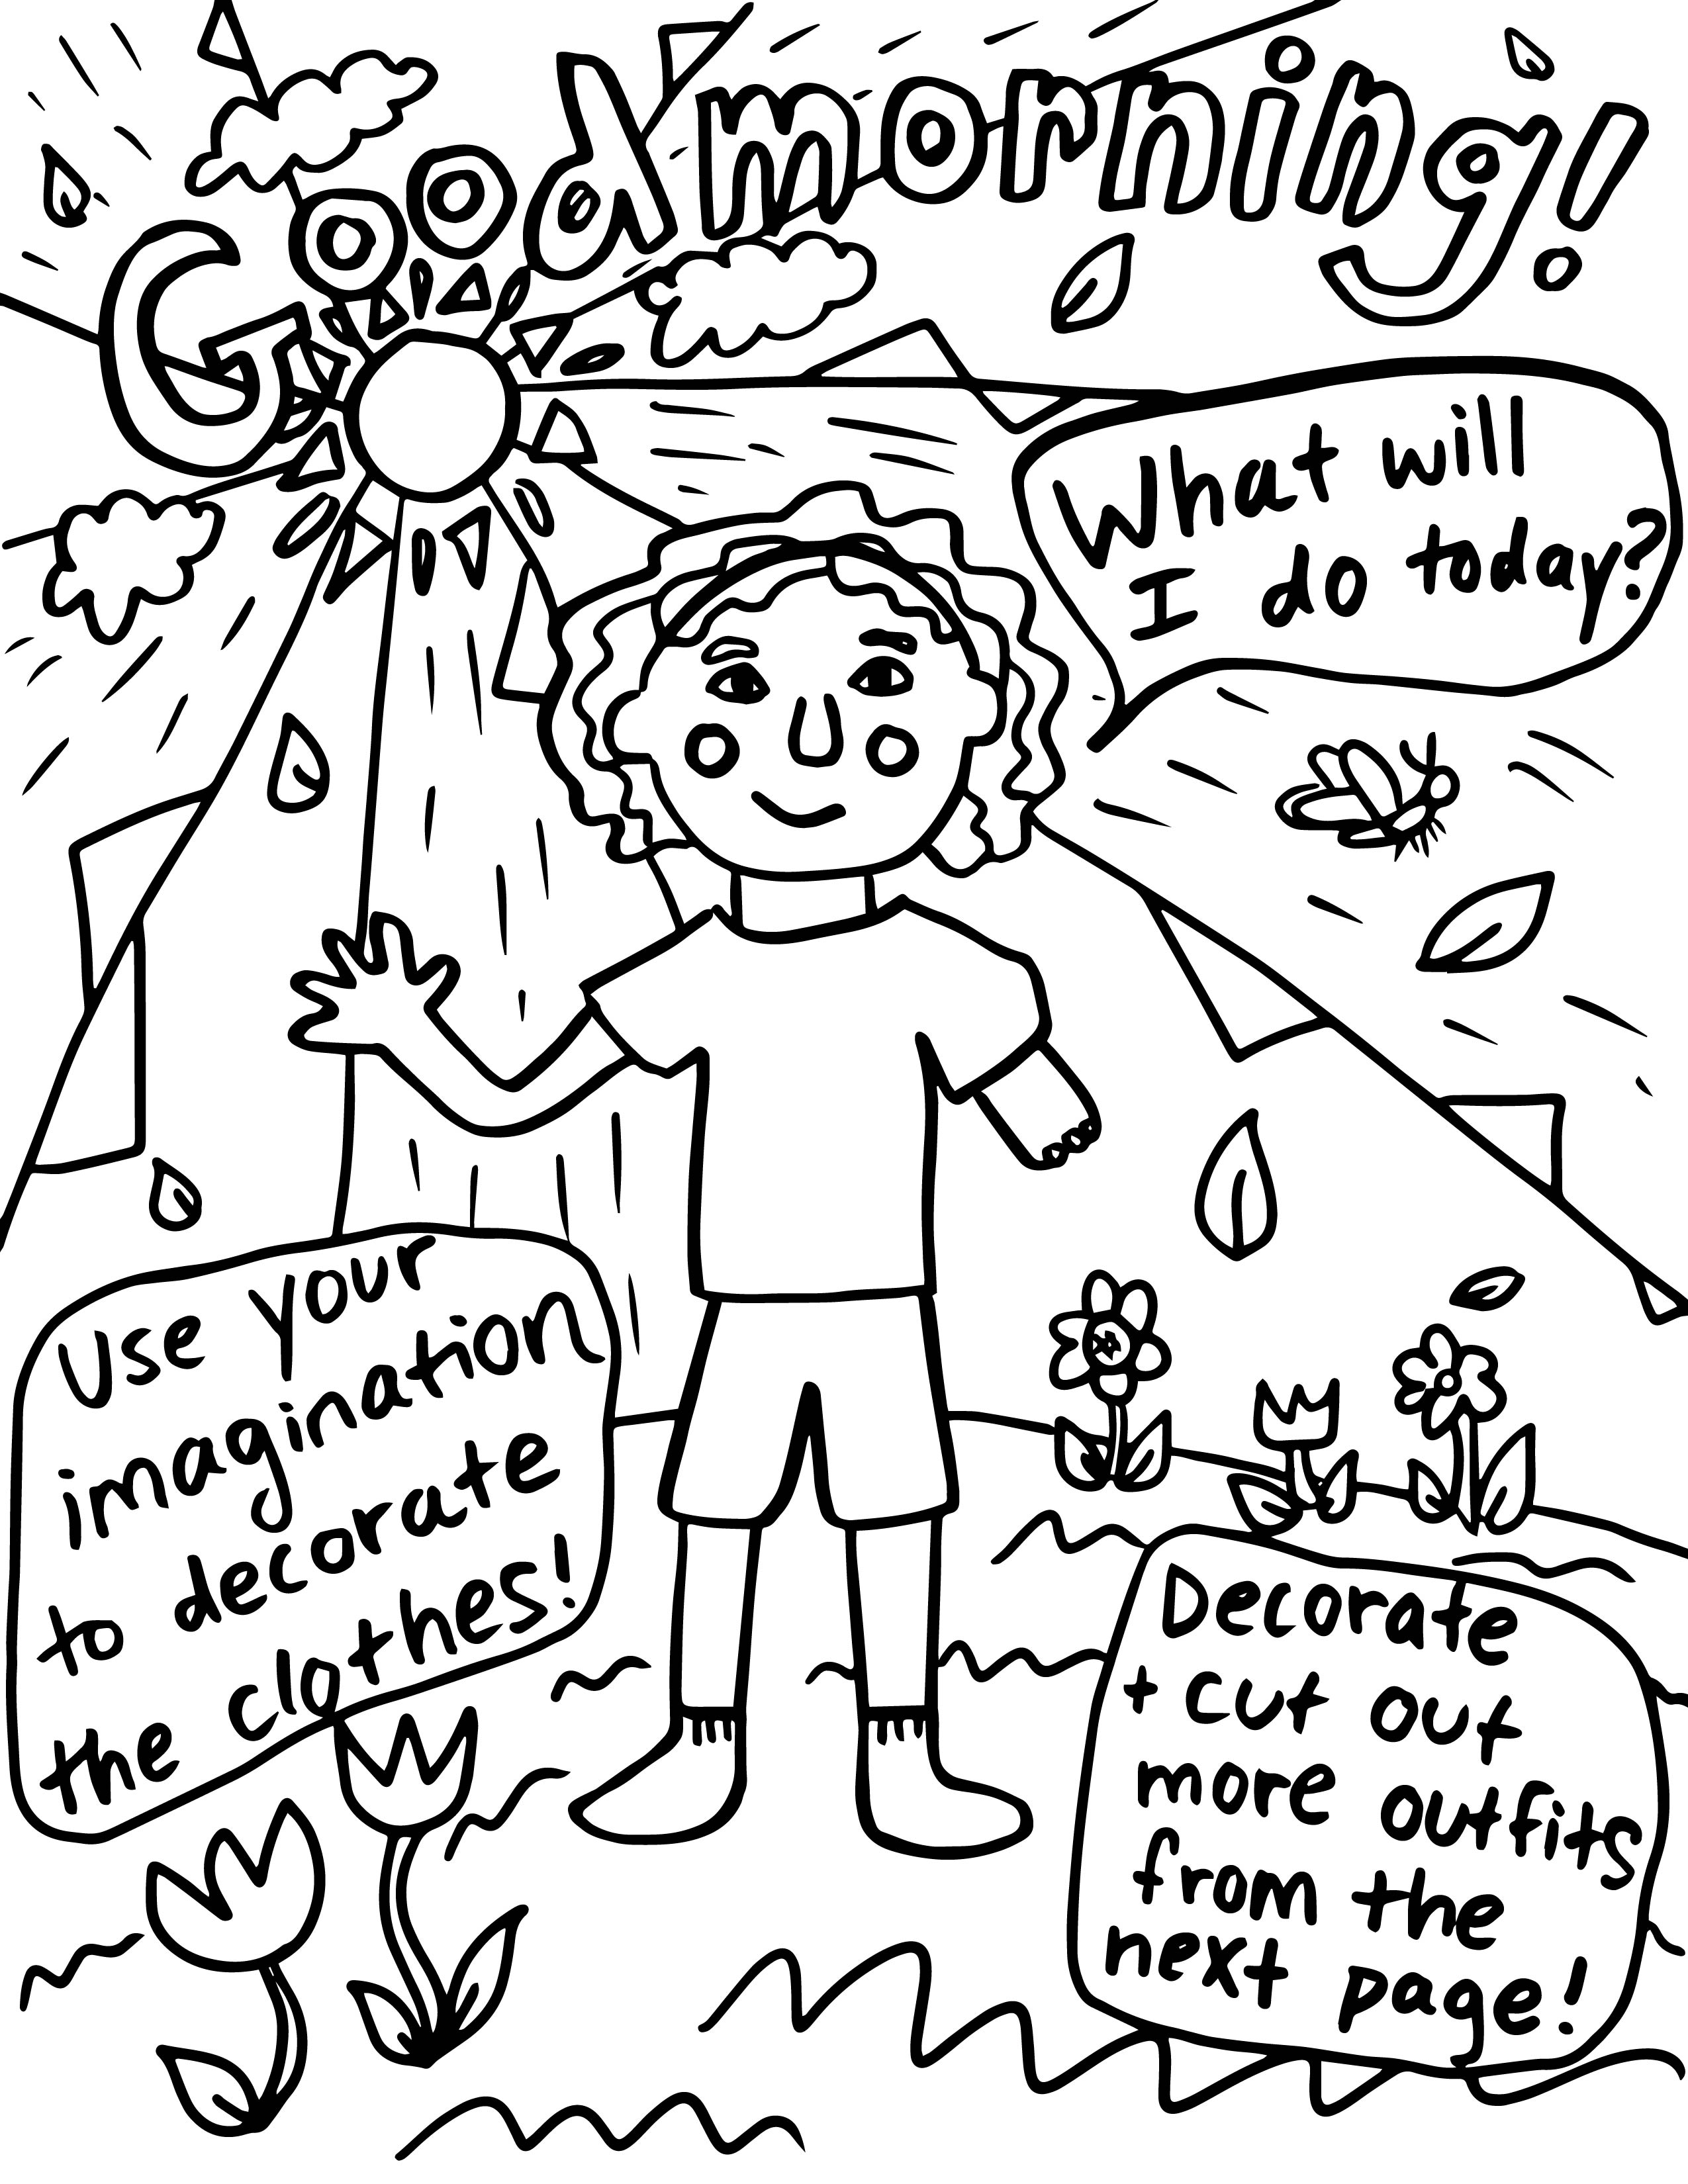 Good morning!
What will
I do today?
Use your
imagination
to decorate
the clothes!
Decorate
+ cut out
more outfits
from the
next page!